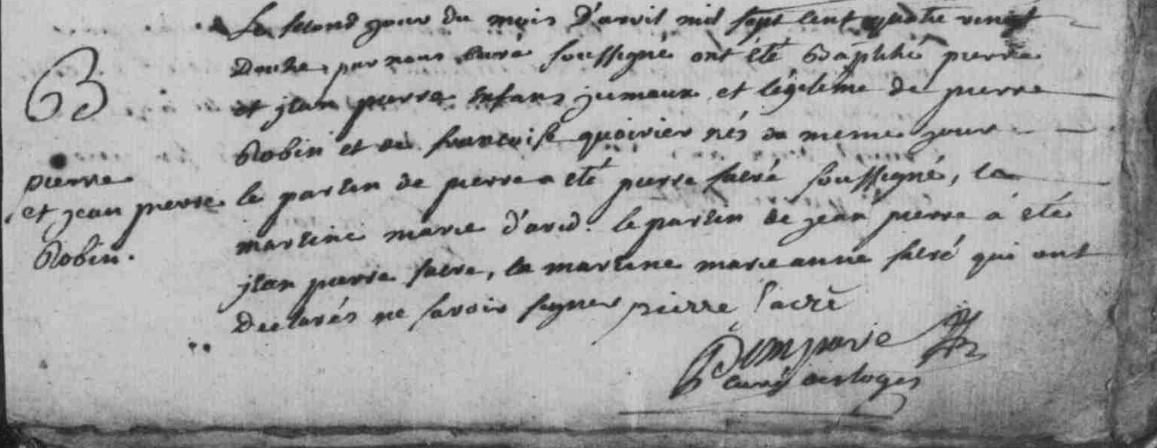 Le second jour du mois d'avril mil sept cent quatre vingt
Douze par nous curé soussigné ont été Baptisé pierre
et jean pierre enfans jumeaux et légitime de pierre
Robin et de francoise quoirier nés du meme jour
le parein de pierre a été pierre sacré soussigné, la
mareine marie d'avid. le parein de jean pierre à été
jean pierre sacre, la mareine marie anne sacré qui ont
declarés ne savoir signer pierre Sacrè
B
pierre
et jean pierre
Robin.
curé des loges